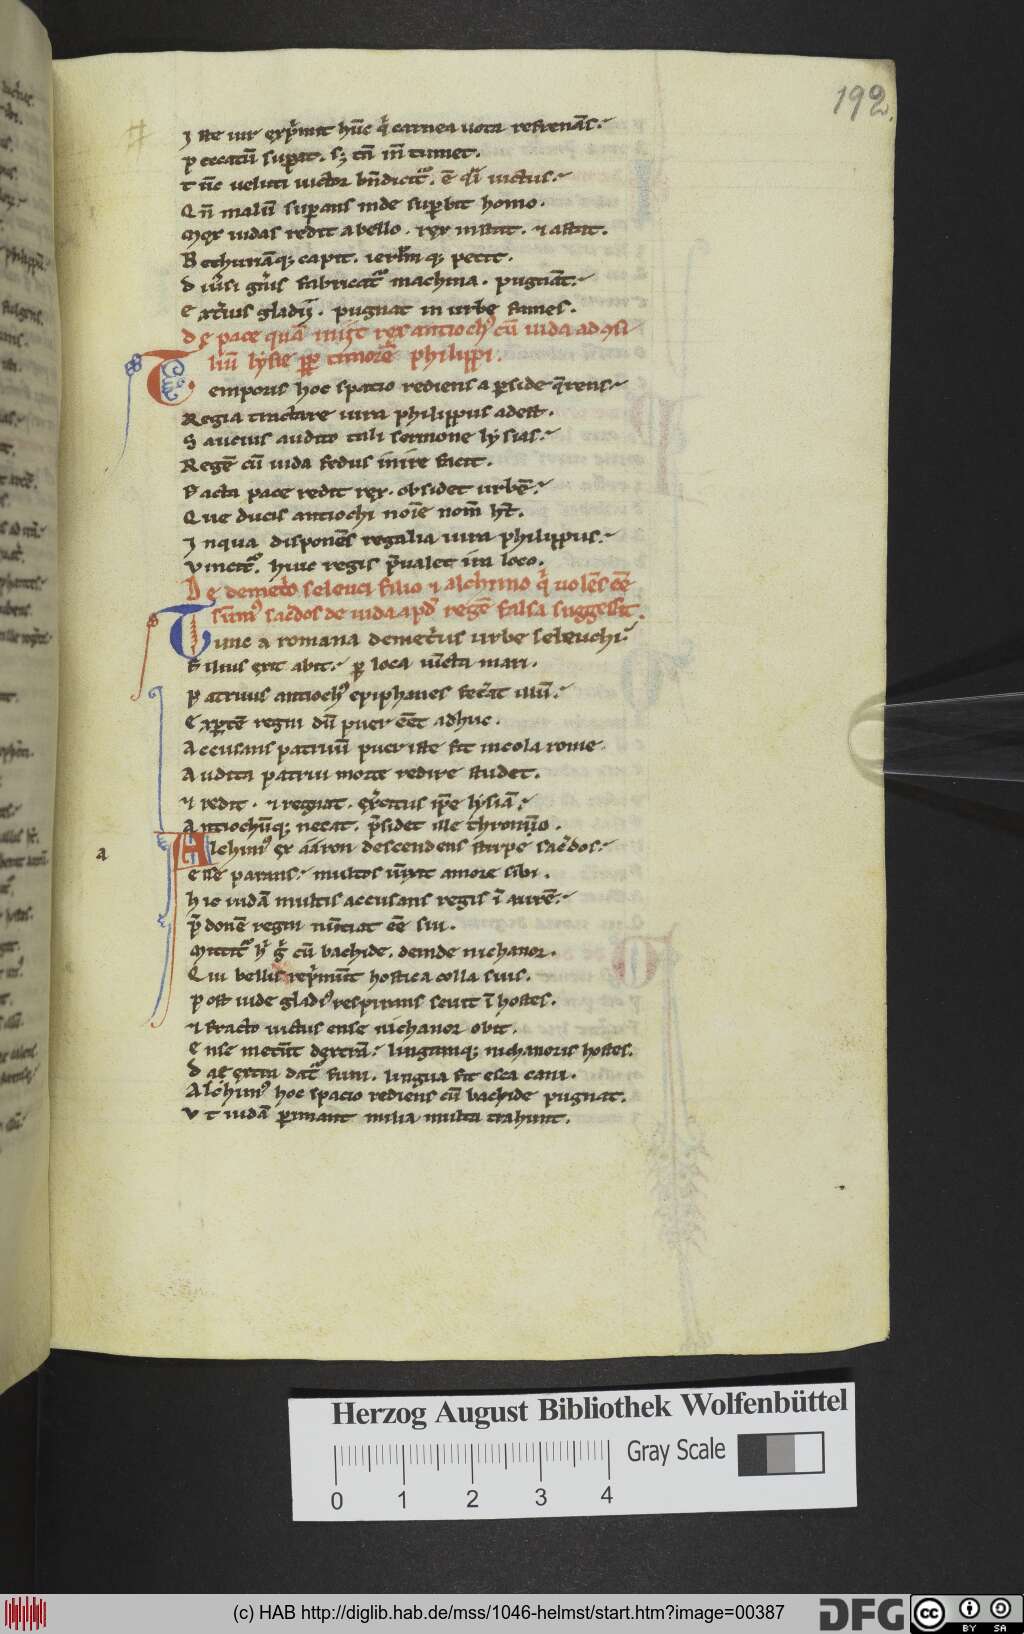 192
J ste uir exp̄mit hūc q̄ carnea uota refrenās.
p eccatū supat. s; tn̄ in̄ tumet.
t ūc ueluti uictor bn̄dicit᷑. ē q̄i uictus.
Qn̄ malū supans inde supbit homo.
Mox iudas redit a bello. rex instat. ⁊ astat.
B ethurāq; capit. ierl̄m q; petit.
d iūsi gn̄is fabricat᷑ machina. pugnāt.
E xt̄ius gladij. pugnat in urbe fames.
De pace quā iniit rex antioch᷒ cū iuda ad
liū lysie ꝓp timorē philippi.
Temporis hoc spacio rediens a pside q̄rens
Regia tractare iura philippus adest.
S aucius audito tali sermone lysias.
Regē cū iuda fedus inire facit.
F acta pace redit rex. obsidet urbē.
Que ducis antiochi noīe nom̄ ht̄.
J nqua disponēs regalia iura philippus.
Vincit᷑. huic regis p̄ualet ira loco.
De demet̄o seleuci filio ⁊ alchimo q̄ uolēs eē
sūm᷒ sac̄dos de iuda apd̓ regē falsa suggessit.
Tunc a romana demet̄us urbe seleuchi
F ilius exit abit. p loca iūcta mari.
P atruus antioch᷒ epiphanes fec̄at illū.
Exptē regni dū puer eēt adhuc.
Accusans patruū puer iste fit incola rome.
Audita patrui morte redire studet.
⁊ redit. ⁊ regnat. ex̄citus ip̄e lysiā.
Antiochūq; necat. p̄sidet ille throno.
a
Alchim᷒ ex aaron descendens stirpe sac̄dos.
esse parans. multos iūxit amore sibi.
hic iudā multis accusans regis ī aurē.
p̄donē regni nūciat eē sui.
Mittit᷑ h̄ ḡ cū bachide. deinde nichanor.
Qui bellis rep̄munt hostica colla suis.
p ost iude gladi᷒ respirans seuit ī hostes.
⁊ fracto uictus ense nichanor obit.
Ense metūt dextrā. linguamq; nichanoris hostes.
d at᷑ extra dat᷑ funi. lingua fit esca cani.
Alchim᷒ hoc spacio rediens cū bachide pugnat.
V t iudā pimant milia multa trahunt.
Herzog August Bibliothek Wolfenbüttel
Gray Scale
0 1 2 3 4
(c) HAB http://diglib.hab.de/mss/1046-helmst/start.htm?image=00387
DFG
cc BY SA